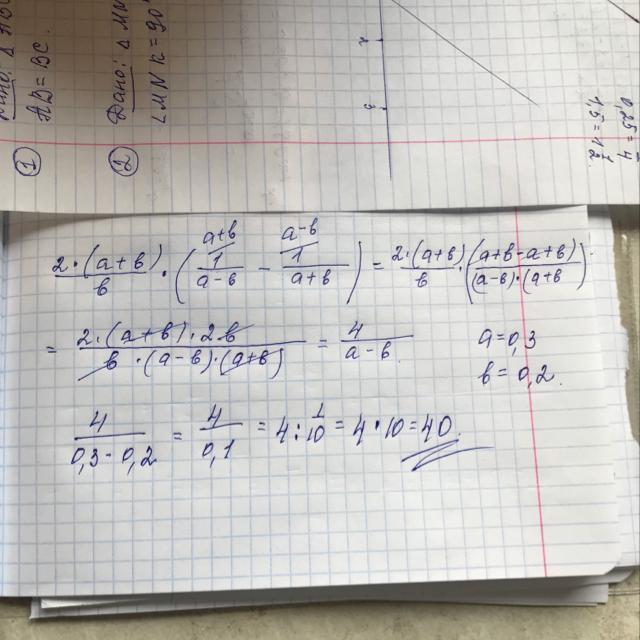 ① Дано: Δ
AB = BC.
② Дано: Δ MN
∠MNK = 90
0,25 = 4
1,5 = 1 1/2
2·(a+b)/b · ( (a+b) 1/(a-b) - (a-b) 1/(a+b) ) = 2·(a+b)/b · ( (a+b-a+b)/((a-b)·(a+b) )
= 2·(a+b)·2b / b·(a-b)·(a+b) = 4/(a-b)
a=0,3
b=0,2.
4/(0,3-0,2) = 4/0,1 = 4 : 1/10 = 4·10 = 40.